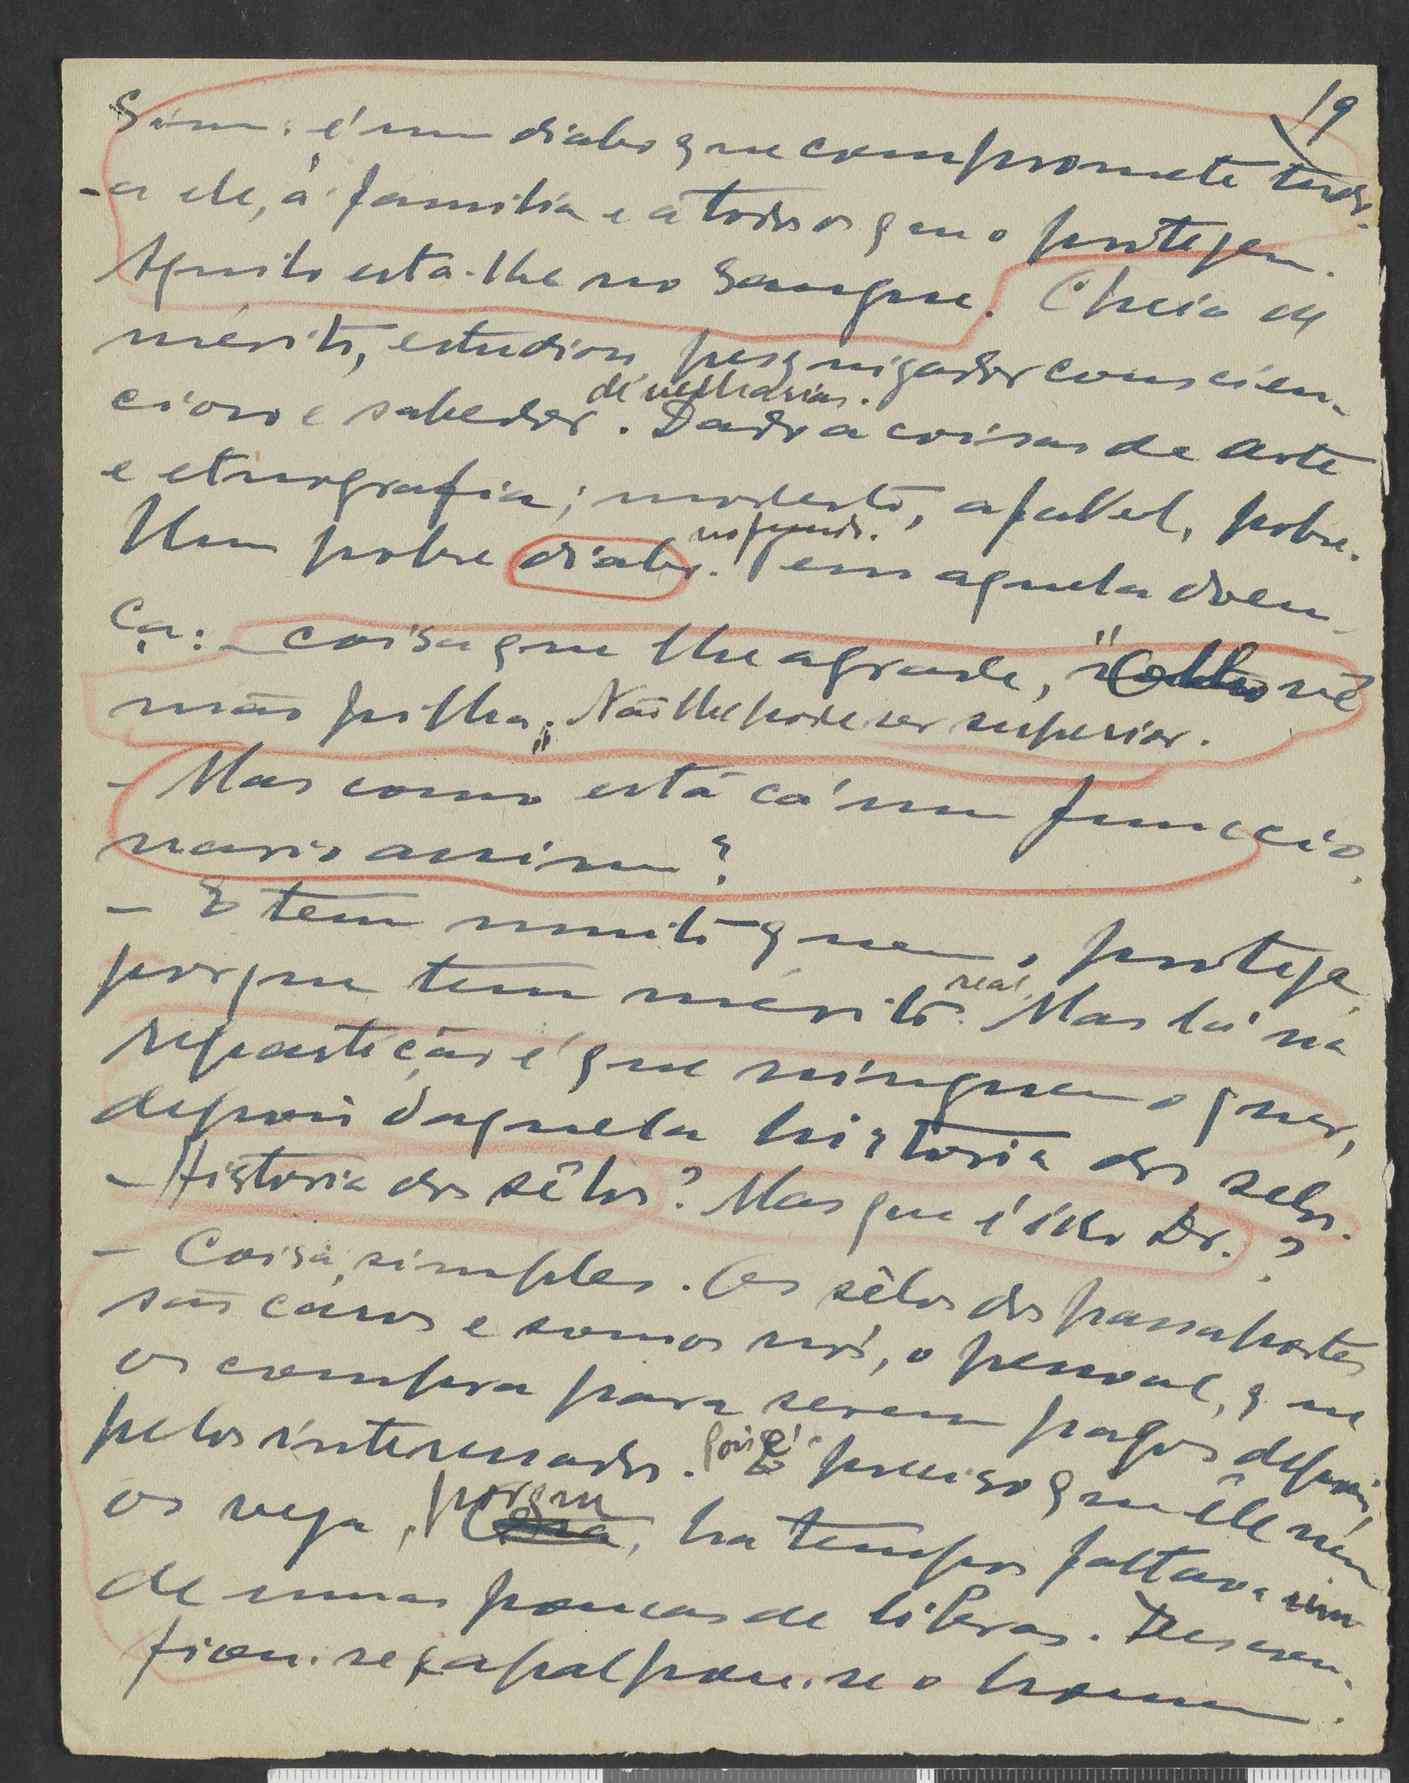 19
Sim: é um diabo que compromete tudo
- a ele, á familia e a todos os que o protegem.
Aquilo está-lhe no sangue. Cheio de
mérito, estudioso, pesquizador conscien-
cioso e sabedor. de velharias. Dado a coisas de arte
e etnografia; modesto, afavel, pobre.
Um pobre diabo. no fundo. Tem aquela doen-
ça: - coisa que lhe agrade, " vê
mão filha„. Não lhe pode ser superior.
- Mas como está cá um funccio-
nario assim?
- E tem muito quem o proteja
porque tem mérito real. Mas lá na
repartição é que ninguem o quer,
depois daquela historia dos selos.
- Historia dos sêlos? Mas que é isso Dr.?
- Coisa simples. Os sêlos dos passaportes
são caros e somos nós, o pessoal, que
os compra para serem pagos depois
pelos interessados. Pois é preciso que êle nem
os veja, porque, ha tempos faltava
de umas poucas de libras. Descon-
fiou-se e apalpou-se o homem.